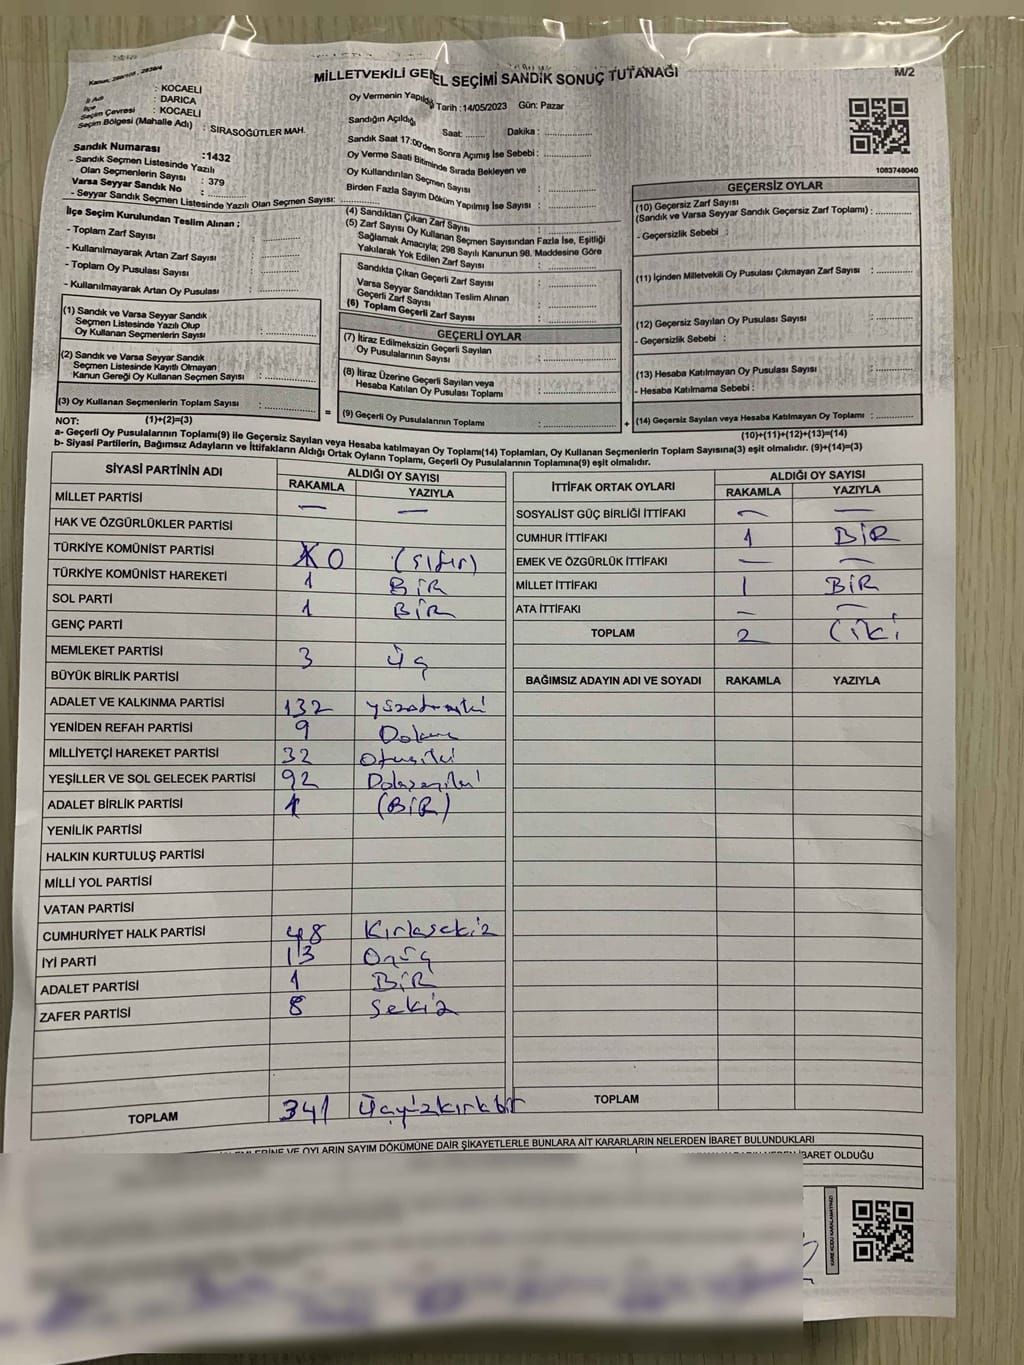 MİLLETVEKİLİ GENEL SEÇİMİ SANDIK SONUÇ TUTANAĞI
M/2
İl Adı : KOCAELİ
İlçe : DARICA
Seçim Çevresi : KOCAELİ
Seçim Bölgesi (Mahalle Adı) : SIRASÖĞÜTLER MAH.
Sandık Numarası :1432
- Sandık Seçmen Listesinde Yazılı
Olan Seçmenlerin Sayısı : 379
Varsa Seyyar Sandık No :
- Seyyar Sandık Seçmen Listesinde Yazılı Olan Seçmen Sayısı:
İlçe Seçim Kurulundan Teslim Alınan ;
- Toplam Zarf Sayısı
- Kullanılmayarak Artan Zarf Sayısı
- Toplam Oy Pusulası Sayısı
- Kullanılmayarak Artan Oy Pusulası
(1) Sandık ve Varsa Seyyar Sandık
Seçmen Listesinde Yazılı Olup
Oy Kullanan Seçmenlerin Sayısı :
(2) Sandık ve Varsa Seyyar Sandık
Seçmen Listesinde Kayıtlı Olmayan
Kanun Gereği Oy Kullanan Seçmen Sayısı :
(3) Oy Kullanan Seçmenlerin Toplam Sayısı :
(1)+(2)=(3)
Oy Vermenin Yapıldığı Tarih :14/05/2023 Gün: Pazar
Sandığın Açıldığı Saat: Dakika :
Sandık Saat 17:00'den Sonra Açımış İse Sebebi :
Oy Verme Saati Bitiminde Sırada Bekleyen ve
Oy Kullandırılan Seçmen Sayısı :
Birden Fazla Sayım Döküm Yapılmış İse Sayısı :
(4) Sandıktan Çıkan Zarf Sayısı :
(5) Zarf Sayısı Oy Kullanan Seçmen Sayısından Fazla İse, Eşitliği
Sağlamak Amacıyla; 298 Sayılı Kanunun 98. Maddesine Göre
Yakılarak Yok Edilen Zarf Sayısı :
Sandıkta Çıkan Geçerli Zarf Sayısı :
Varsa Seyyar Sandıktan Teslim Alınan
Geçerli Zarf Sayısı :
(6) Toplam Geçerli Zarf Sayısı :
GEÇERLİ OYLAR
(7) İtiraz Edilmeksizin Geçerli Sayılan
Oy Pusulalarının Sayısı :
(8) İtiraz Üzerine Geçerli Sayılan veya
Hesaba Katılan Oy Pusulası Toplamı :
= (9) Geçerli Oy Pusulalarının Toplamı :
1083748040
GEÇERSİZ OYLAR
(10) Geçersiz Zarf Sayısı
(Sandık ve Varsa Seyyar Sandık Geçersiz Zarf Toplamı) :
- Geçersizlik Sebebi :
(11) İçinden Milletvekili Oy Pusulası Çıkmayan Zarf Sayısı :
(12) Geçersiz Sayılan Oy Pusulası Sayısı :
- Geçersizlik Sebebi :
(13) Hesaba Katılmayan Oy Pusulası Sayısı :
- Hesaba Katılmama Sebebi :
+ (14) Geçersiz Sayılan veya Hesaba Katılmayan Oy Toplamı :
(10)+(11)+(12)+(13)=(14)
NOT:
a- Geçerli Oy Pusulalarının Toplamı(9) ile Geçersiz Sayılan veya Hesaba katılmayan Oy Toplamı(14) Toplamları, Oy Kullanan Seçmenlerin Toplam Sayısına(3) eşit olmalıdır. (9)+(14)=(3)
b- Siyasi Partilerin, Bağımsız Adayların ve İttifakların Aldığı Ortak Oyların Toplamı, Geçerli Oy Pusulalarının Toplamına(9) eşit olmalıdır.
SİYASİ PARTİNİN ADI ALDIĞI OY SAYISI
RAKAMLA YAZIYLA
MİLLET PARTİSİ — —
HAK VE ÖZGÜRLÜKLER PARTİSİ
TÜRKİYE KOMÜNİST PARTİSİ 0 (sıfır)
TÜRKİYE KOMÜNİST HAREKETİ 1 BİR
SOL PARTİ 1 BİR
GENÇ PARTİ
MEMLEKET PARTİSİ 3 üç
BÜYÜK BİRLİK PARTİSİ
ADALET VE KALKINMA PARTİSİ 132
YENİDEN REFAH PARTİSİ 9 Dokuz
MİLLİYETÇİ HAREKET PARTİSİ 32 otuziki
YEŞİLLER VE SOL GELECEK PARTİSİ 92
ADALET BİRLİK PARTİSİ 1 (BİR)
YENİLİK PARTİSİ
HALKIN KURTULUŞ PARTİSİ
MİLLİ YOL PARTİSİ
VATAN PARTİSİ
CUMHURİYET HALK PARTİSİ 48 Kırksekiz
İYİ PARTİ 13 Onüç
ADALET PARTİSİ 1 BİR
ZAFER PARTİSİ 8 Sekiz
TOPLAM 341 Üçyüzkırkbir
İTTİFAK ORTAK OYLARI ALDIĞI OY SAYISI
RAKAMLA YAZIYLA
SOSYALİST GÜÇ BİRLİĞİ İTTİFAKI — —
CUMHUR İTTİFAKI 1 BİR
EMEK VE ÖZGÜRLÜK İTTİFAKI — —
MİLLET İTTİFAKI 1 BİR
ATA İTTİFAKI — —
TOPLAM 2 (iki
BAĞIMSIZ ADAYIN ADI VE SOYADI RAKAMLA YAZIYLA
TOPLAM
VE OYLARIN SAYIM DÖKÜMÜNE DAİR ŞİKAYETLERLE BUNLARA AİT KARARLARIN NELERDEN İBARET BULUNDUKLARI
İBARET OLDUĞU
KARE KODU KARALAMAYINIZ!